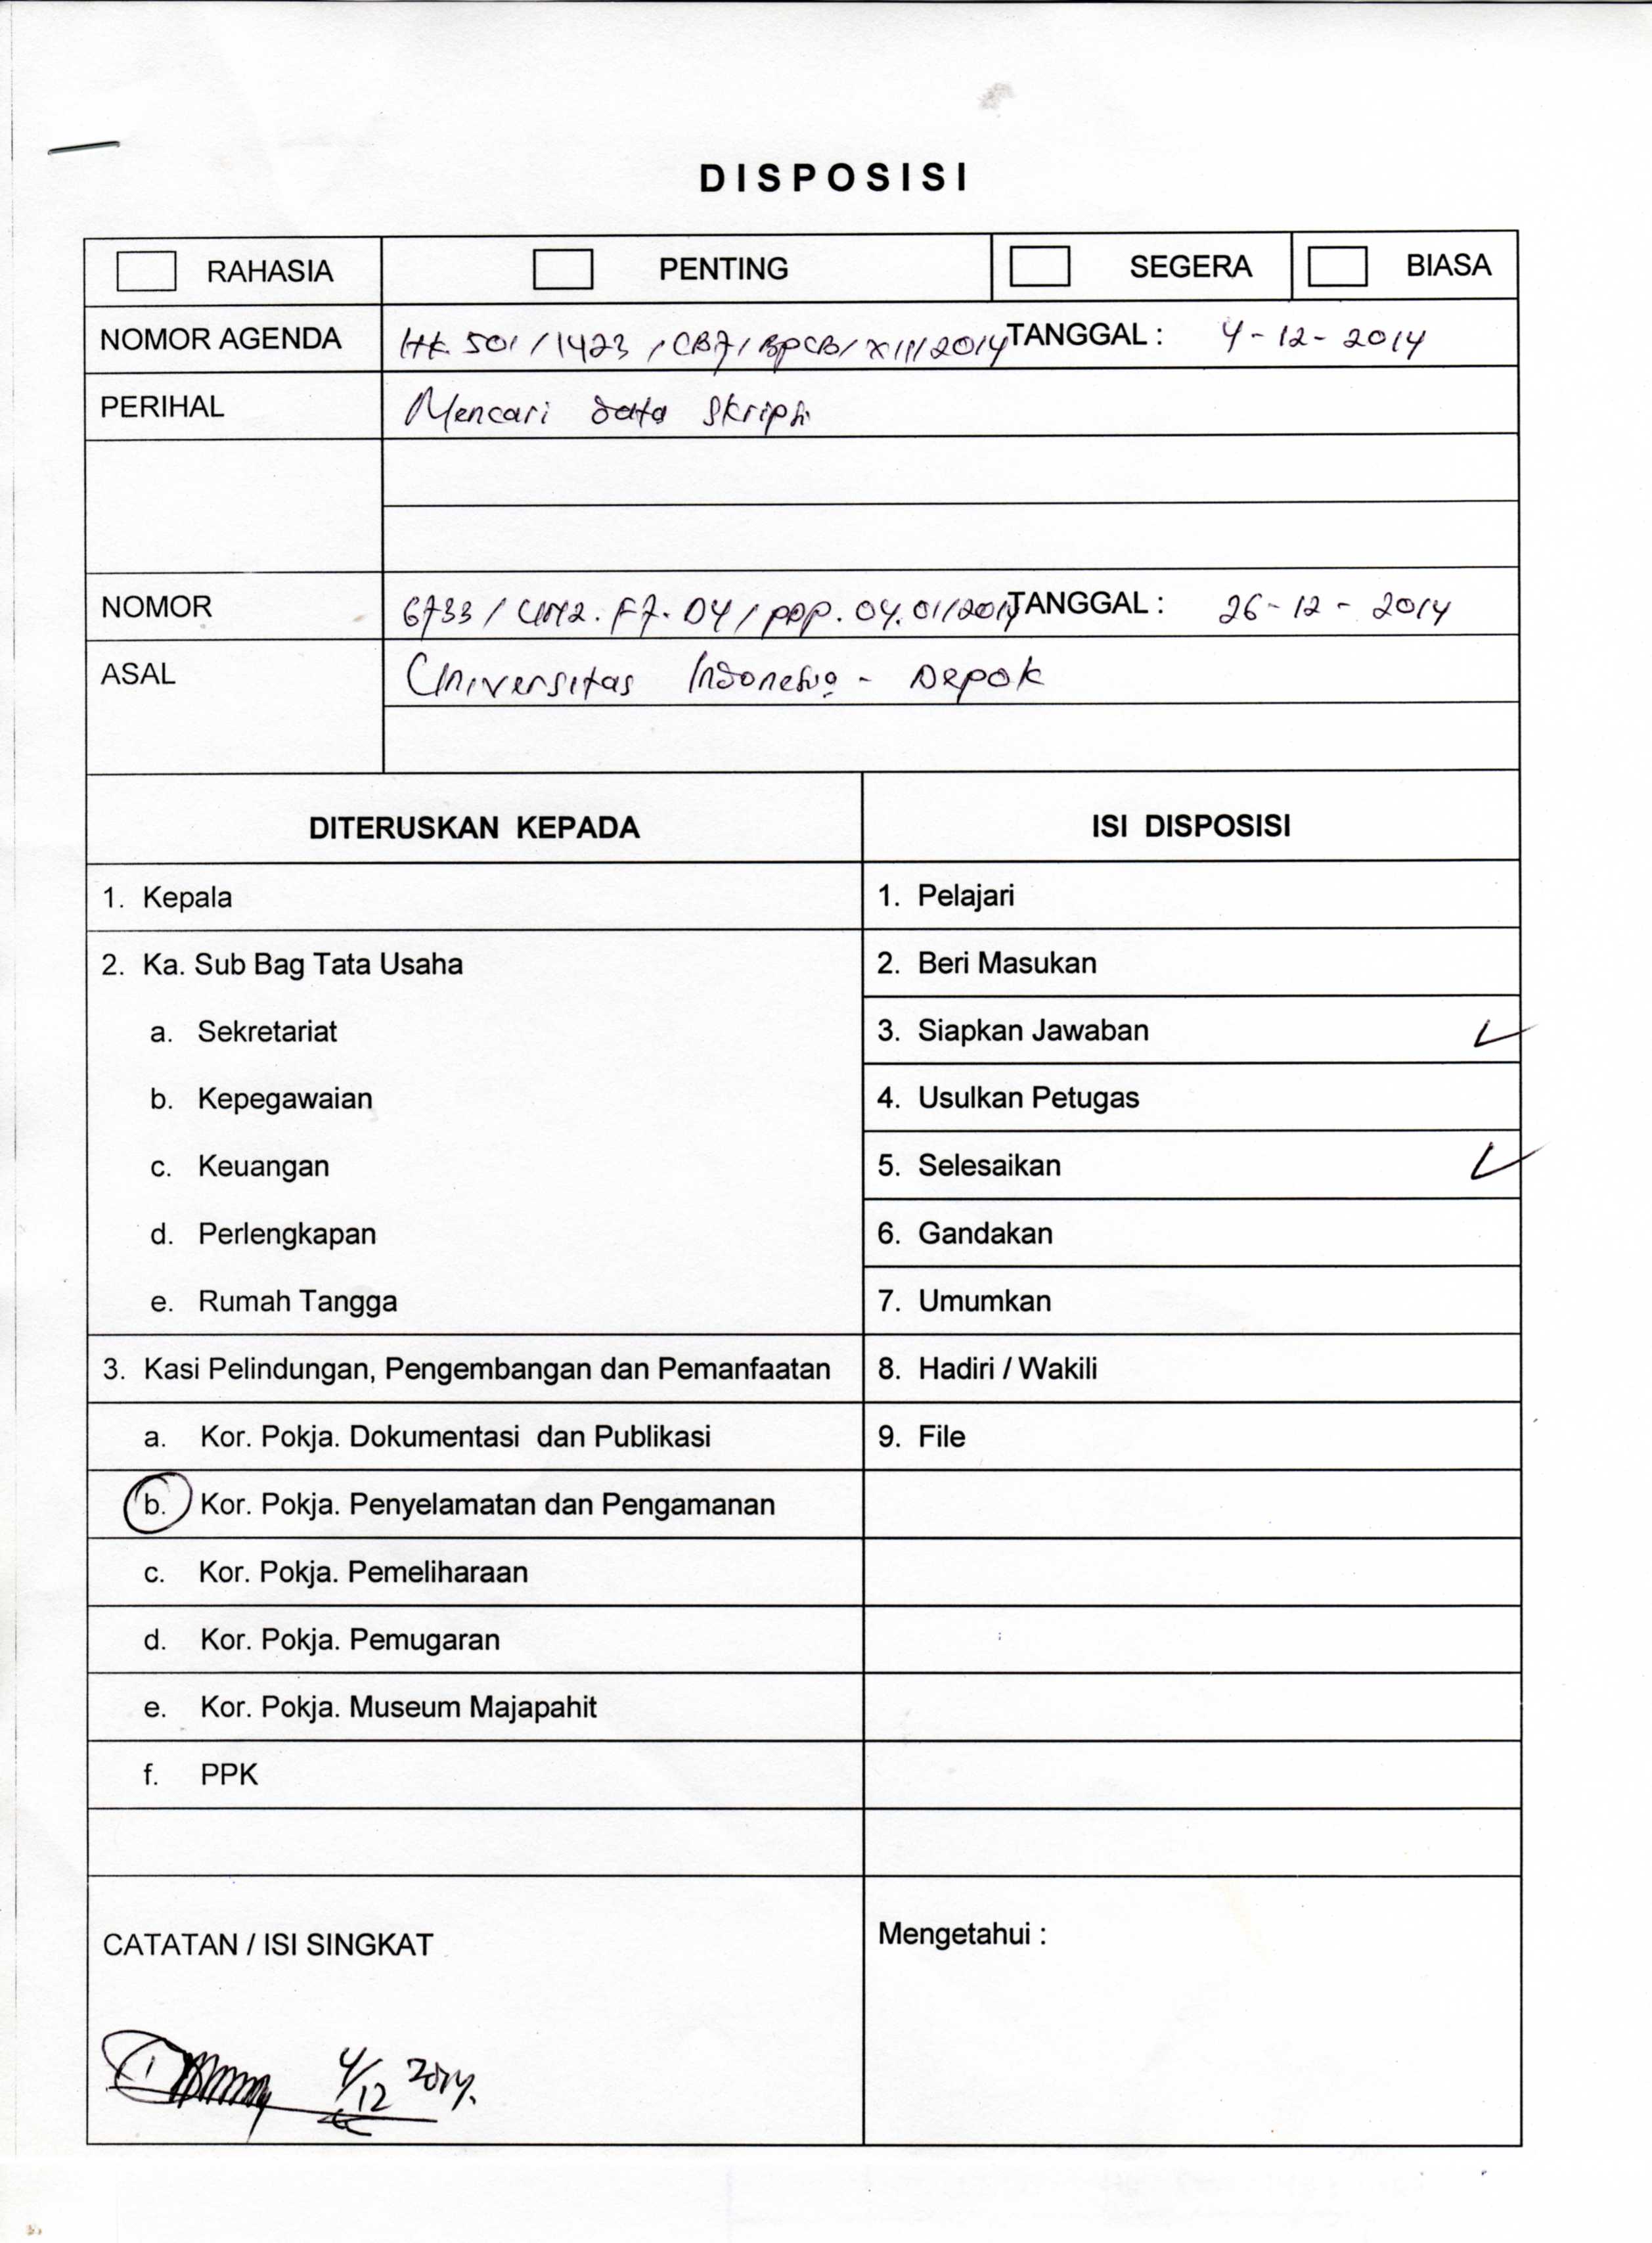 DISPOSISI
RAHASIA PENTING SEGERA BIASA
NOMOR AGENDA HK 501/1423/CB7/BPCB/XII/2014 TANGGAL : 4-12-2014
PERIHAL Mencari data Skripsi
NOMOR 6733/UN2.F7.D4/PDP.04.01/2014 TANGGAL : 26-12-2014
ASAL Universitas Indonesia - Depok
DITERUSKAN KEPADA ISI DISPOSISI
1. Kepala 1. Pelajari
2. Ka. Sub Bag Tata Usaha 2. Beri Masukan
a. Sekretariat 3. Siapkan Jawaban
b. Kepegawaian 4. Usulkan Petugas
c. Keuangan 5. Selesaikan
d. Perlengkapan 6. Gandakan
e. Rumah Tangga 7. Umumkan
3. Kasi Pelindungan, Pengembangan dan Pemanfaatan 8. Hadiri / Wakili
a. Kor. Pokja. Dokumentasi dan Publikasi 9. File
b. Kor. Pokja. Penyelamatan dan Pengamanan
c. Kor. Pokja. Pemeliharaan
d. Kor. Pokja. Pemugaran
e. Kor. Pokja. Museum Majapahit
f. PPK
CATATAN / ISI SINGKAT Mengetahui :
4/12 2014.